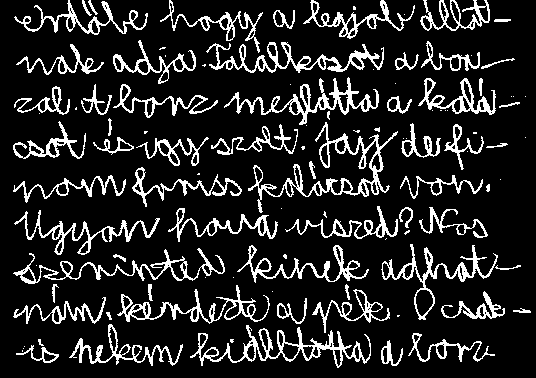 erdőbe hogy a legjob állat-
nak adja. Találkozot a bor-
zal. A borz meglátta a kalá-
csot és igy szolt. Jajj de fi-
nom friss kalácsod van.
Ugyan hová viszed? Nos
szerinted kinek adhat-
nám. kérdezte a pék. Ó csak-
is nekem kiáltotta a borz